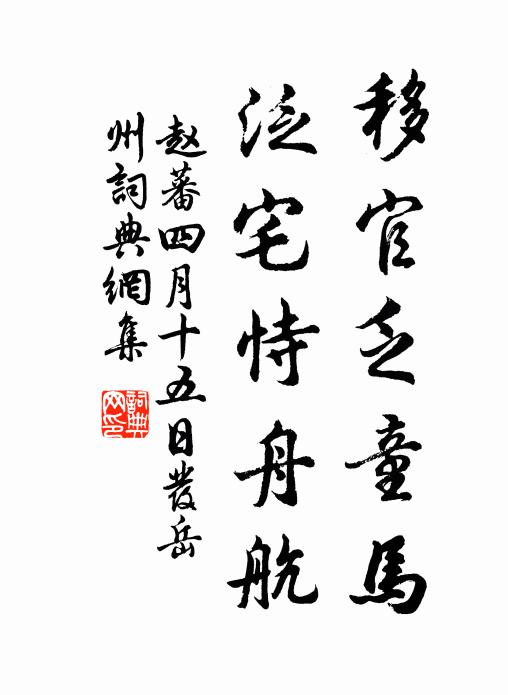 移官乏童馬
泛宅恃舟航
赵蕃四月十五日發岳
州詞典網集
詞典
网印